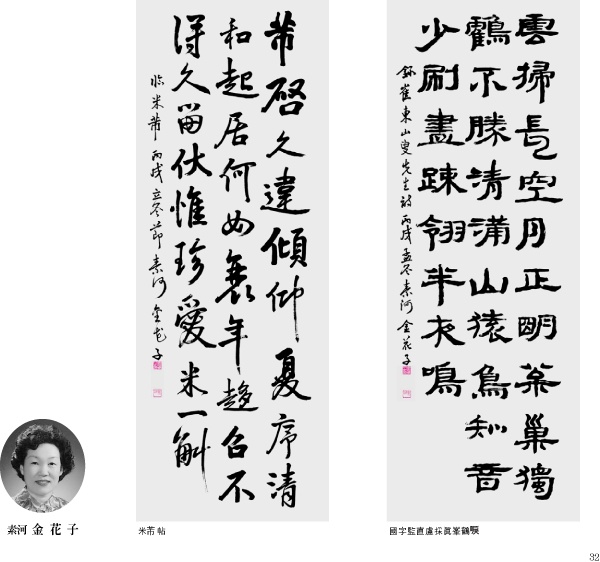 雲掃長空月正明枩巢獨
鶴不勝清滿山猿鳥知音
少刷盡踈翎半夜鳴
錄崔東山叟先生詩 丙戌孟冬 素河 金花子
國字監直盧採眞峯鶴
芾啓久違傾仰夏序清
和起居何如衰年趍召不
得久留伏惟珍愛米一斛
臨米芾 丙戌立冬節 素河 金花子
米芾帖
素河 金花子
32